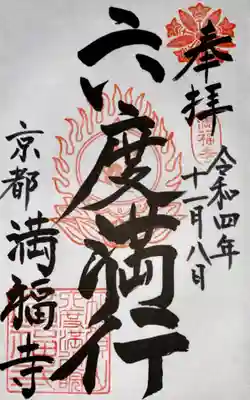 奉拝
令和四年
十一月八日
六度満行
京都 満福寺